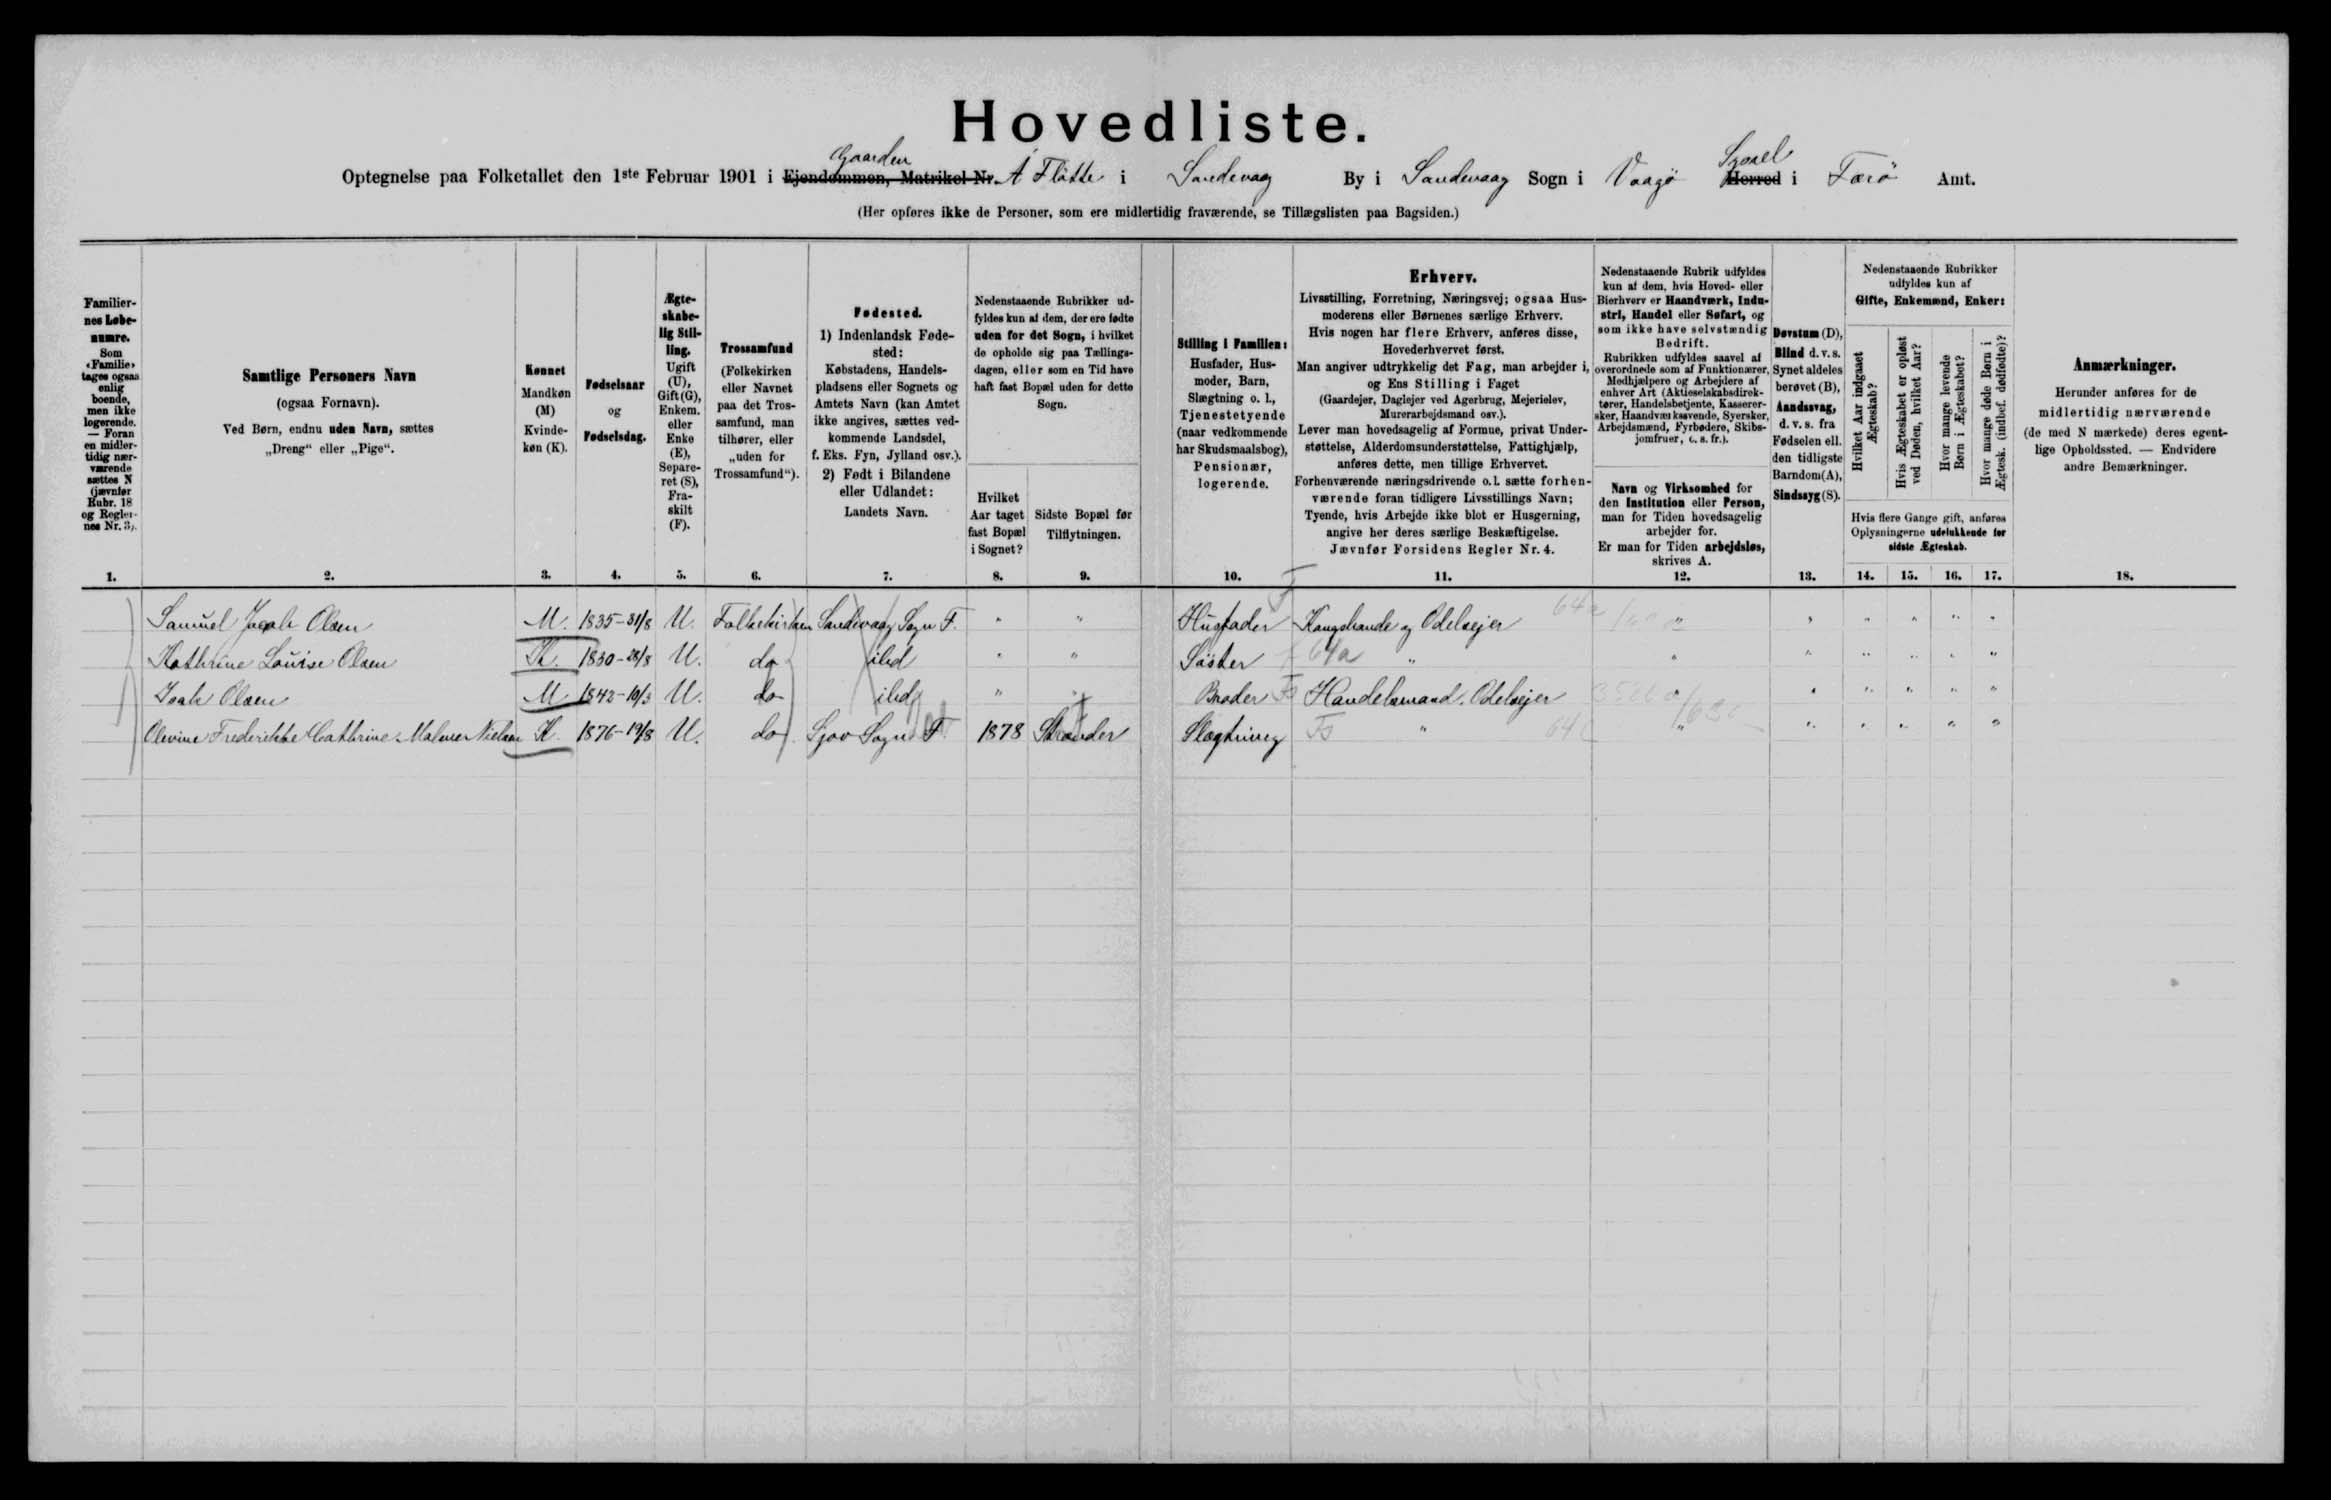 Hovedliste.
Gaarden Sysael
Optegnelse paa Folketallet den 1ste Februar 1901 i Ejendommen, Matrikel-Nr. Á Flötte i Sandevaag By i Sandevaag Sogn i Vaagø Herred i Færø Amt.
(Her opføres ikke de Personer, som ere midlertidig fraværende, se Tillægslisten paa Bagsiden.)
Familiernes Løbenumre.
Som «Familie» tages ogsaa enlig boende, men ikke logerende. — Foran en midlertidig nærværende sættes N (jævnfør Rubr. 18 og Reglernes Nr. 3).
Samtlige Personers Navn
(ogsaa Fornavn).
Ved Børn, endnu uden Navn, sættes
„Dreng“ eller „Pige“.
Kønnet
Mandkøn (M)
Kvindekøn (K).
Fødselsaar
og
Fødselsdag.
Ægteskabelig Stilling.
Ugift (U), Gift (G), Enkem. eller Enke (E), Separeret (S), Fraskilt (F).
Trossamfund
(Folkekirken eller Navnet paa det Trossamfund, man tilhører, eller „uden for Trossamfund“).
Fødested.
1) Indenlandsk Fødested:
Købstadens, Handelspladsens eller Sognets og Amtets Navn (kan Amtet ikke angives, sættes vedkommende Landsdel, f. Eks. Fyn, Jylland osv.).
2) Født i Bilandene eller Udlandet:
Landets Navn.
Nedenstaaende Rubrikker udfyldes kun af dem, der ere fødte uden for det Sogn, i hvilket de opholde sig paa Tællingsdagen, eller som en Tid have haft fast Bopæl uden for dette Sogn.
Hvilket Aar taget fast Bopæl i Sognet?
Sidste Bopæl før Tilflytningen.
Stilling i Familien:
Husfader, Husmoder, Barn, Slægtning o. l., Tjenestetyende (naar vedkommende har Skudsmaalsbog), Pensionær, logerende.
Erhverv.
Livsstilling, Forretning, Næringsvej; ogsaa Husmoderens eller Børnenes særlige Erhverv.
Hvis nogen har flere Erhverv, anføres disse, Hovederhvervet først.
Man angiver udtrykkelig det Fag, man arbejder i, og Ens Stilling i Faget
(Gaardejer, Daglejer ved Agerbrug, Mejerielev, Murerarbejdsmand osv.).
Lever man hovedsagelig af Formue, privat Understøttelse, Alderdomsunderstøttelse, Fattighjælp, anføres dette, men tillige Erhvervet.
Forhenværende næringsdrivende o. l. sætte forhenværende foran tidligere Livsstillings Navn;
Tyende, hvis Arbejde ikke blot er Husgerning, angive her deres særlige Beskæftigelse.
Jævnfør Forsidens Regler Nr. 4.
Nedenstaaende Rubrik udfyldes kun af dem, hvis Hoved- eller Bierhverv er Haandværk, Industri, Handel eller Søfart, og som ikke have selvstændig Bedrift.
Rubrikken udfyldes saavel af overordnede som af Funktionærer, Medhjælpere og Arbejdere af enhver Art (Aktieselskabsdirektører, Handelsbetjente, Kasserersker, Haandværkssvende, Syersker, Arbejdsmænd, Fyrbødere, Skibsjomfruer, o. s. fr.).
Navn og Virksomhed for den Institution eller Person, man for Tiden hovedsagelig arbejder for.
Er man for Tiden arbejdsløs, skrives A.
Døvstum (D),
Blind d. v. s. Synet aldeles berøvet (B),
Aandssvag, d. v. s. fra Fødselen ell. den tidligste Barndom (A),
Sindssyg (S).
Nedenstaaende Rubrikker udfyldes kun af
Gifte, Enkemænd, Enker:
Hvilket Aar indgaaet Ægteskab?
Hvis Ægteskabet er opløst ved Døden, hvilket Aar?
Hvor mange levende Børn i Ægteskabet?
Hvor mange døde Børn i Ægtesk. (indbef. dødfødte)?
Hvis flere Gange gift, anføres Oplysningerne udelukkende for sidste Ægteskab.
Anmærkninger.
Herunder anføres for de midlertidig nærværende (de med N mærkede) deres egentlige Opholdssted. — Endvidere andre Bemærkninger.
1. 2. 3. 4. 5. 6. 7. 8. 9. 10. 11. 12. 13. 14. 15. 16. 17. 18.
Samuel Jacob Olsen M. 1835-31/8 U. Folkekirken Sandevaag Sogn F. " " Husfader F Kongsbonde og Odelsejer 64a " " " " " "
Kathrine Louise Olsen K. 1830-28/8 U. do ibid " " Søster f 64a " " " " " " "
Isak Olsen M 1842-10/3 U. do ibid " " Broder Fs Handelsmand. Odelsejer " " " " " "
Olevine Frederikke Cathrine Malene Nielsen K. 1876-19/8 U. do Gjov Sogn F 1878 Strender Slægtning Fs " 64c " " " " " "